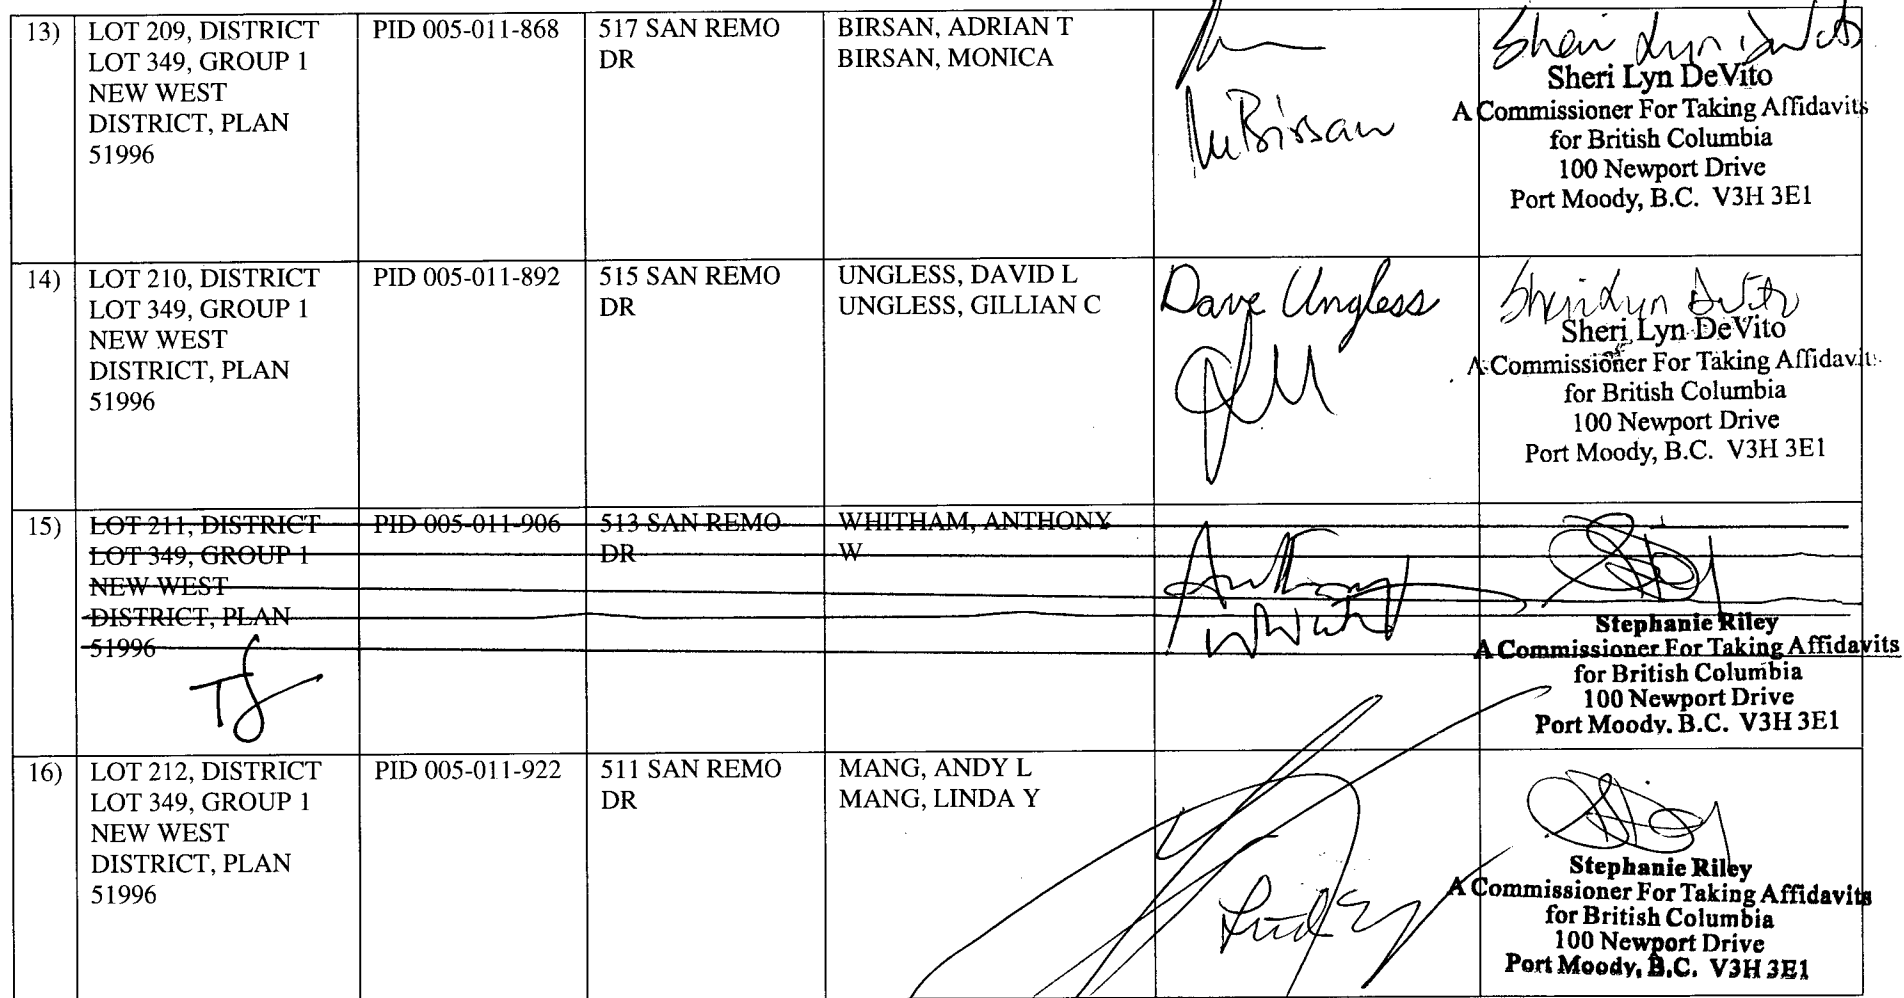 13)
LOT 209, DISTRICT
LOT 349, GROUP 1
NEW WEST
DISTRICT, PLAN
51996
PID 005-011-868
517 SAN REMO
DR
BIRSAN, ADRIAN T
BIRSAN, MONICA
M Birsan
Sheri Lyn DeVito
Sheri Lyn DeVito
A Commissioner For Taking Affidavits
for British Columbia
100 Newport Drive
Port Moody, B.C. V3H 3E1
14)
LOT 210, DISTRICT
LOT 349, GROUP 1
NEW WEST
DISTRICT, PLAN
51996
PID 005-011-892
515 SAN REMO
DR
UNGLESS, DAVID L
UNGLESS, GILLIAN C
Dave Ungless
Sheri Lyn DeVito
Sheri Lyn DeVito
A Commissioner For Taking Affidavits
for British Columbia
100 Newport Drive
Port Moody, B.C. V3H 3E1
15)
LOT 211, DISTRICT
LOT 349, GROUP 1
NEW WEST
DISTRICT, PLAN
51996
PID 005-011-906
513 SAN REMO
DR
WHITHAM, ANTHONY
W
Anthony
Stephanie Riley
A Commissioner For Taking Affidavits
for British Columbia
100 Newport Drive
Port Moody, B.C. V3H 3E1
16)
LOT 212, DISTRICT
LOT 349, GROUP 1
NEW WEST
DISTRICT, PLAN
51996
PID 005-011-922
511 SAN REMO
DR
MANG, ANDY L
MANG, LINDA Y
Stephanie Riley
A Commissioner For Taking Affidavits
for British Columbia
100 Newport Drive
Port Moody, B.C. V3H 3E1